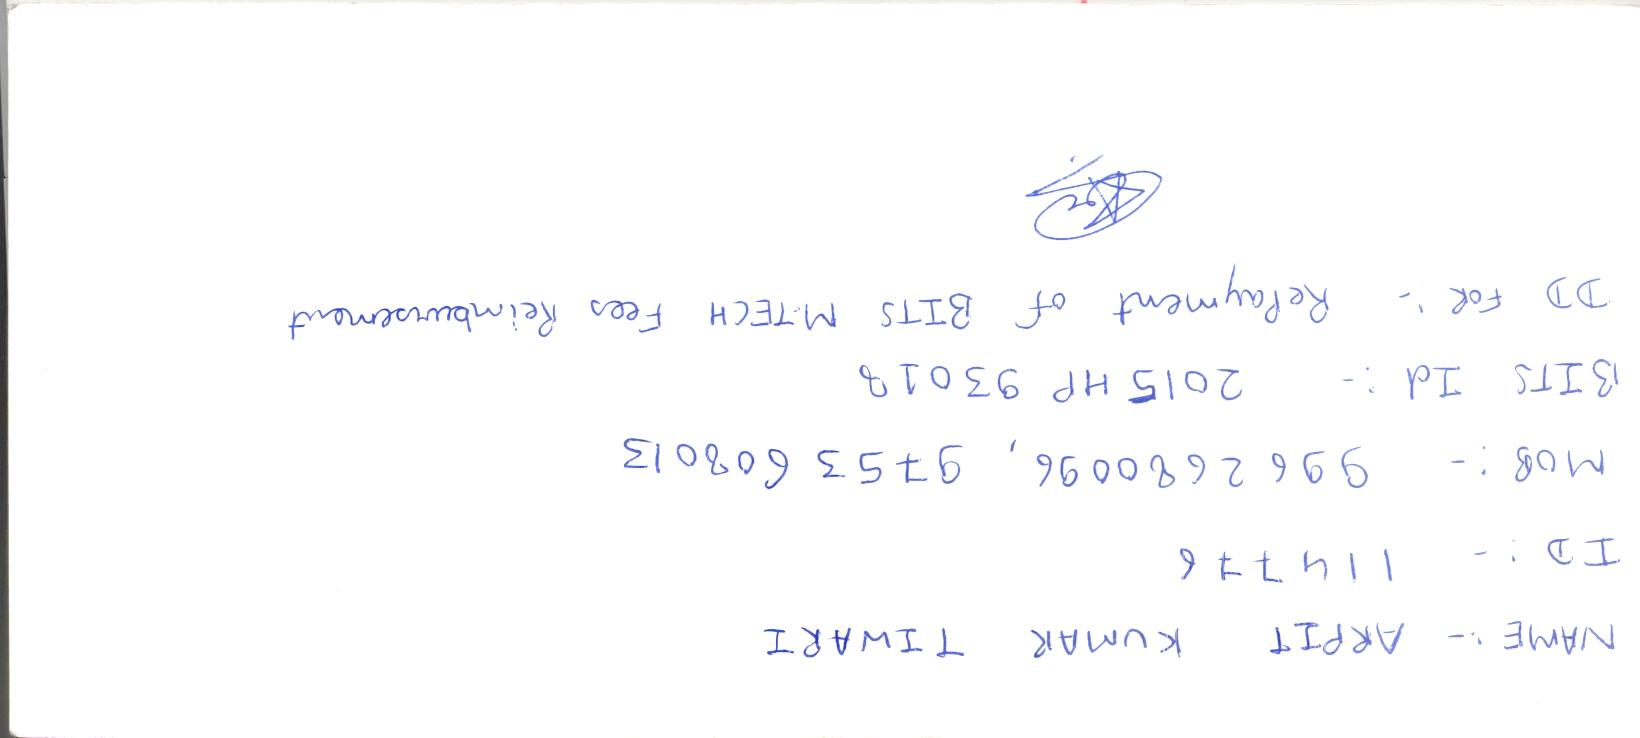 NAME :- ARPIT KUMAR TIWARI
ID :- 114776
MOB :- 9962680096, 9753608013
BITS Id :- 2015HP93018
DD FOR :- RePayment of BITS M.TECH Fees Reimbursement